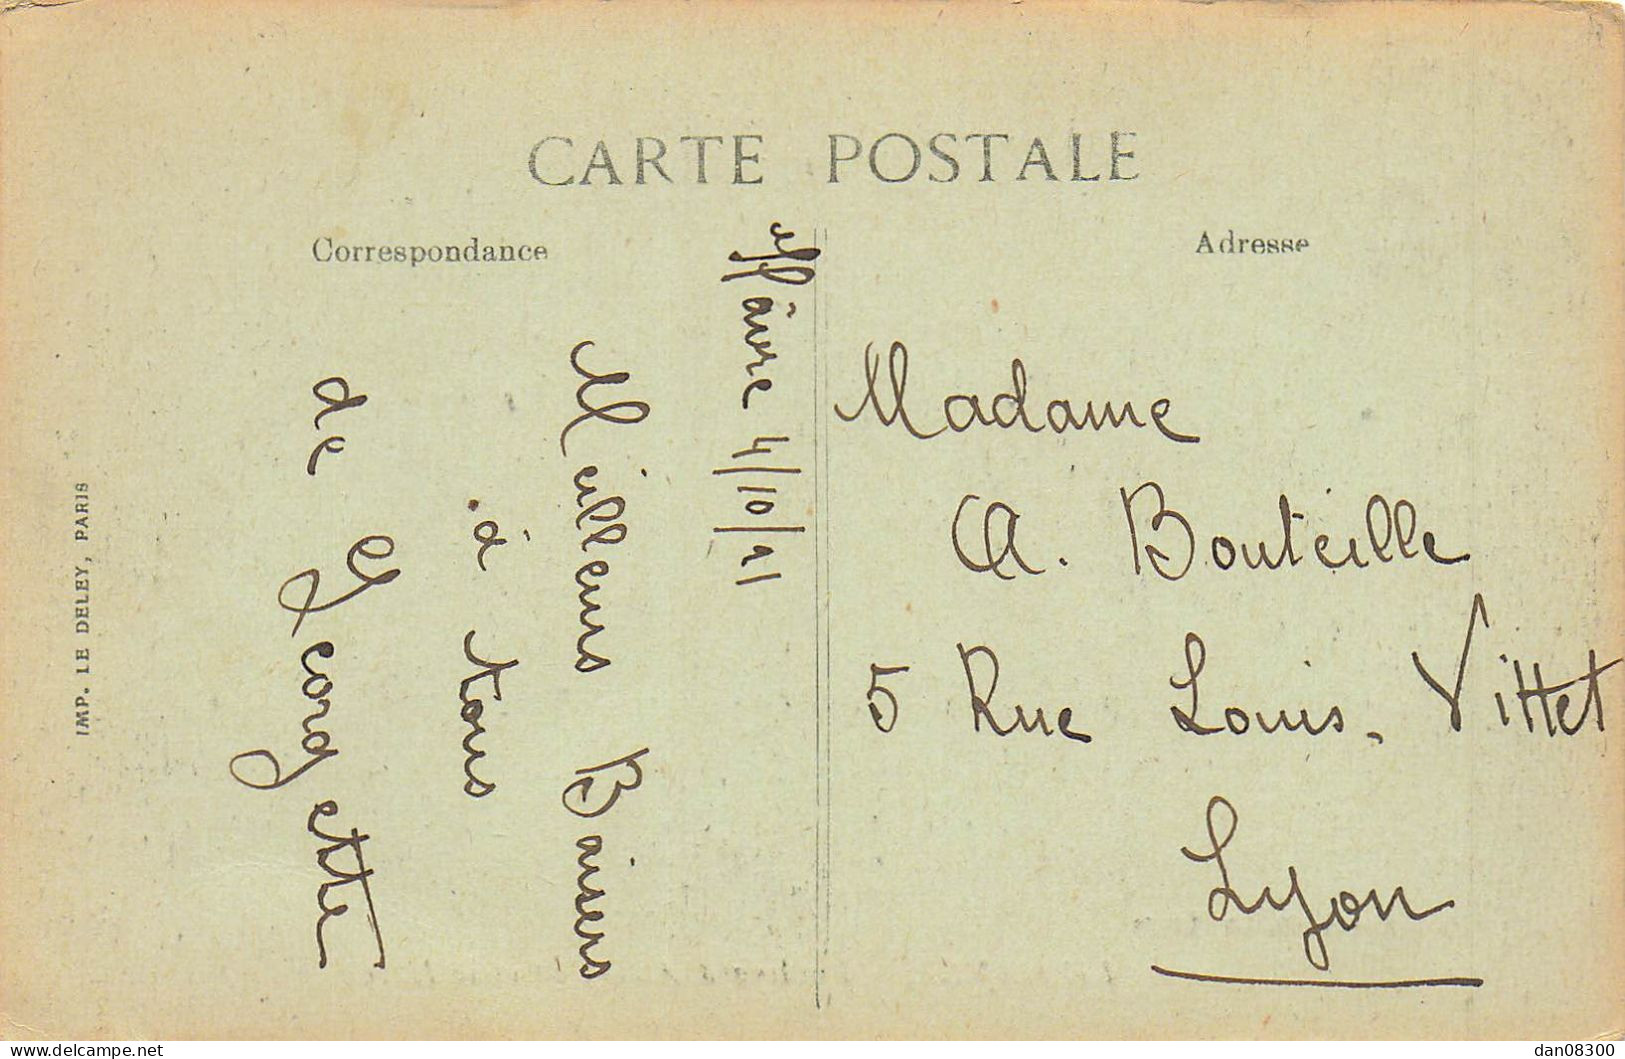 CARTE POSTALE
Correspondance
Adresse
Hâvre 4/10/21
Meilleurs Baisers
à tous
de Georgette
Madame
A. Bouteille
5 Rue Louis. Vittet
Lyon
IMP. LE DELEY, PARIS
www.delcampe.net
dan08300